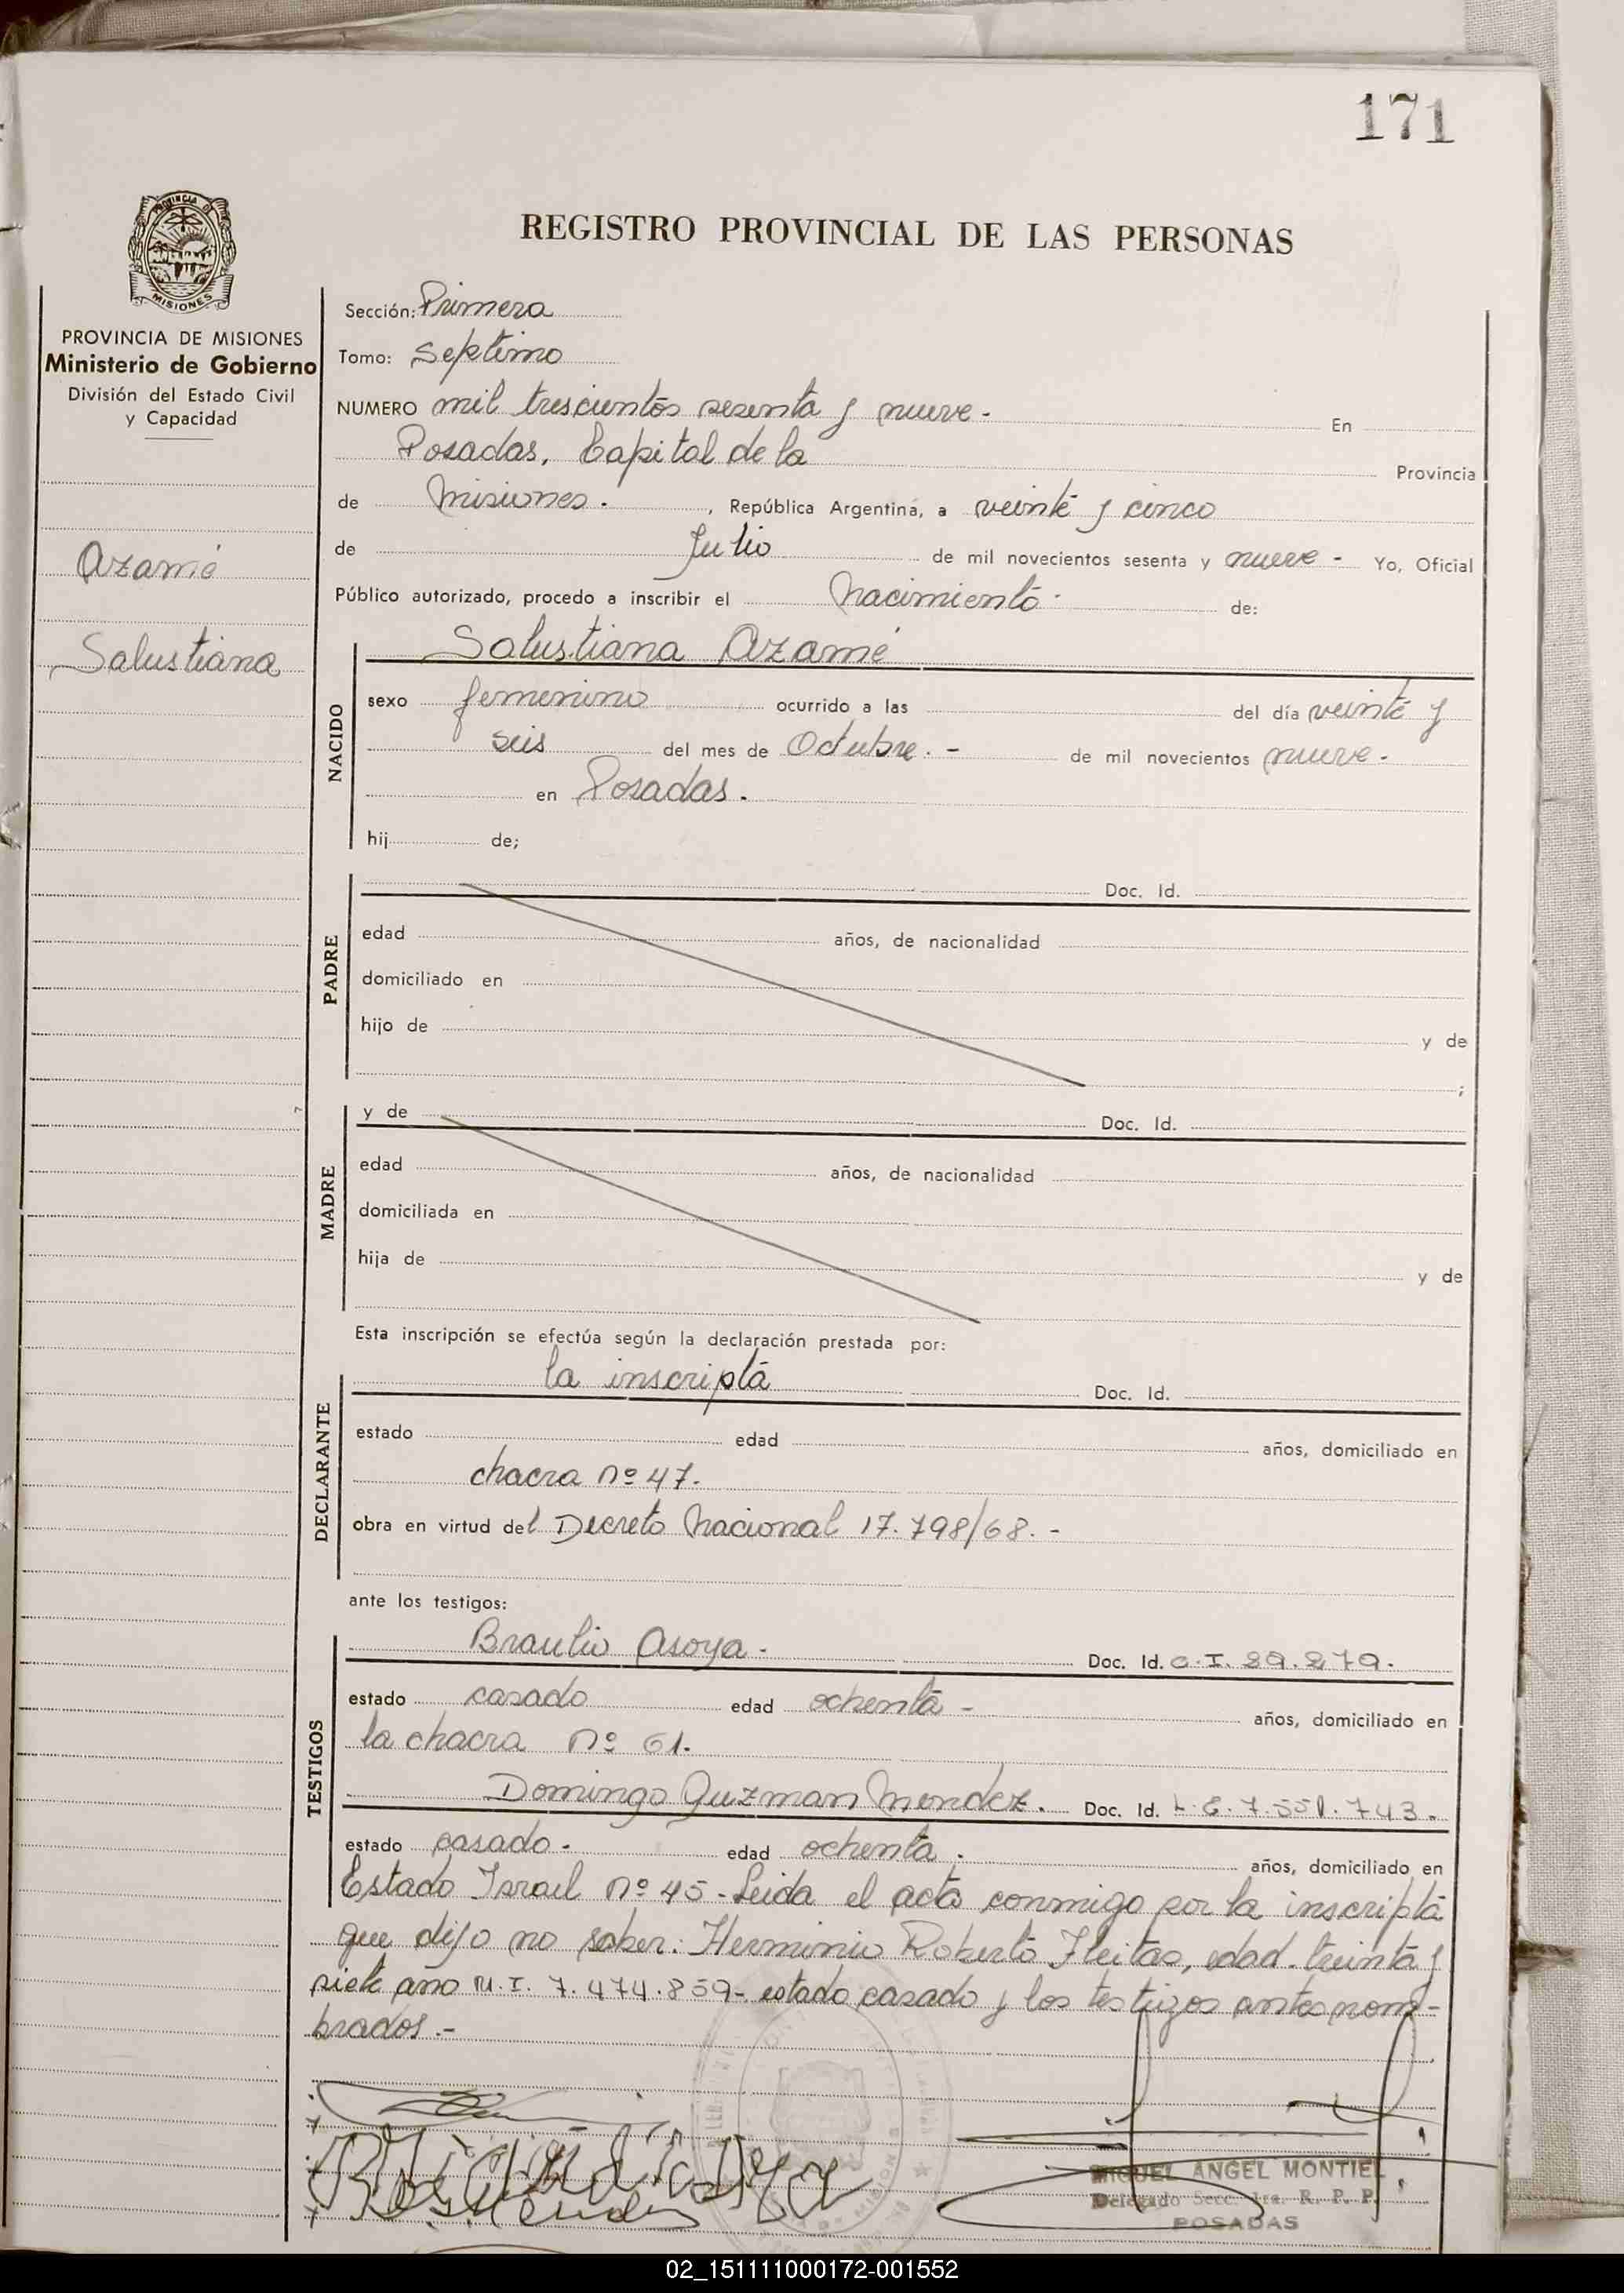 171
REGISTRO PROVINCIAL DE LAS PERSONAS
MISIONES
PROVINCIA DE MISIONES
Ministerio de Gobierno
División del Estado Civil
y Capacidad
Azamé
Salustiana
Sección: Primera
Tomo: Septimo
NUMERO mil trescientos sesenta y nueve - En
Posadas, Capital de la Provincia
de Misiones. , República Argentina, a veinte y cinco
de Julio de mil novecientos sesenta y nueve - Yo, Oficial
Público autorizado, procedo a inscribir el Nacimiento - de:
Salustiana Azamé
NACIDO
sexo femenino ocurrido a las del día veinte y
seis del mes de Octubre. - de mil novecientos nueve -
en Posadas.
hij de;
PADRE
Doc. Id.
edad años, de nacionalidad
domiciliado en
hijo de y de
;
MADRE
y de Doc. Id.
edad años, de nacionalidad
domiciliada en
hija de y de
Esta inscripción se efectúa según la declaración prestada por:
DECLARANTE
la inscripta Doc. Id.
estado edad años, domiciliado en
chacra nº 47.
obra en virtud del Decreto Nacional 17.798/68. -
ante los testigos:
TESTIGOS
Braulio Asoya - Doc. Id. C.I. 29.279.
estado casado edad ochenta - años, domiciliado en
la chacra nº 61.
Domingo Guzman Mendez. Doc. Id. L.E. 7.551.743.
estado casado - edad ochenta . años, domiciliado en
Estado Israel nº 45 - Leida el acta conmigo por la inscripta
que dijo no saber: Herminio Roberto Fleitas, edad treinta y
siete año M.I. 7.474.859 - estado casado y los testigos antes nom-
brados. -
MIGUEL ANGEL MONTIEL
Delegado Secc. 1ra. R. P. P.
POSADAS
02_151111000172-001552